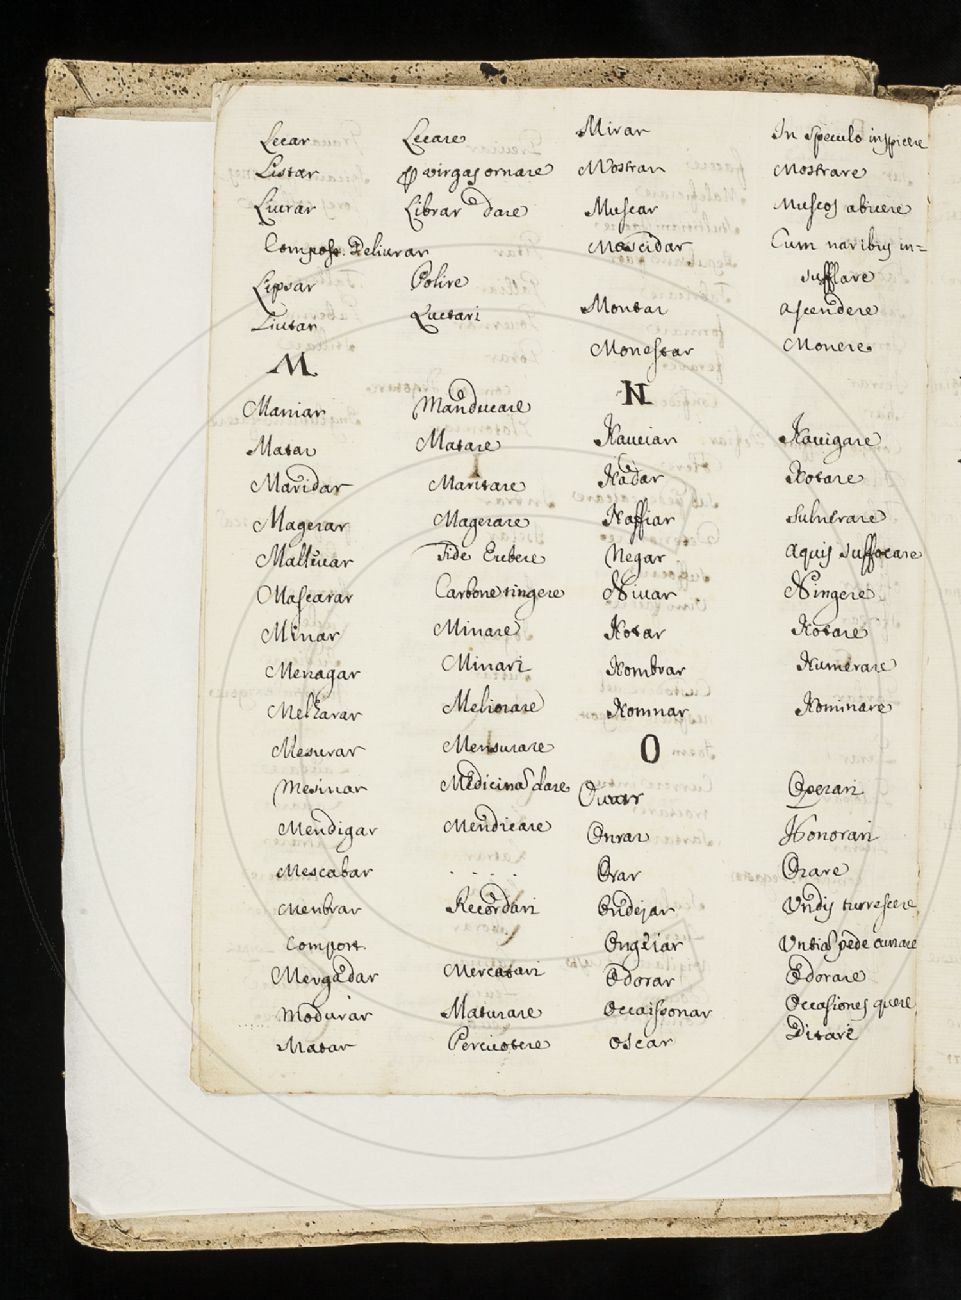 Lecar Lecare
Listar virgas ornare
Liurar Librar dare
Compost. Deliurar
Lipsar Polire
Liutar Luctari
M
Maniar Manducare
Matar Matare
Maridar Maritare
Magerar Magerare
Mallevar Fide Eubere
Mascarar Carbone tingere
Minar Minare
Menagar Minari
Melharar Meliorare
Mesurar Mensurare
Mesinar Medicina dare
Mendigar Mendicare
Mescabar . . . .
Menbrar Recordari
Comport
Mergadar Mercatari
Madurar Maturare
Matar Percutere
Mirar In speculo inspicere
Mostrar Mostrare
Muscar Muscos abiuere
Moscidar Cum naribus in=
sufflare
Montar ascendere
Monestar Monere
N
Naueiar Nauigare
Nadar Notare
Naffiar Vulnerare
Negar Aquis suffocare
Niuar Ningere
Notar Notare
Nombrar Numerare
Nomnar Nominare
O
Operari
Onrar Honorari
Orar Orare
Ondejar Undis turrescere
Ongliar
Odorar Odorare
Occaissonar Occasiones quere
Oscar Ditare